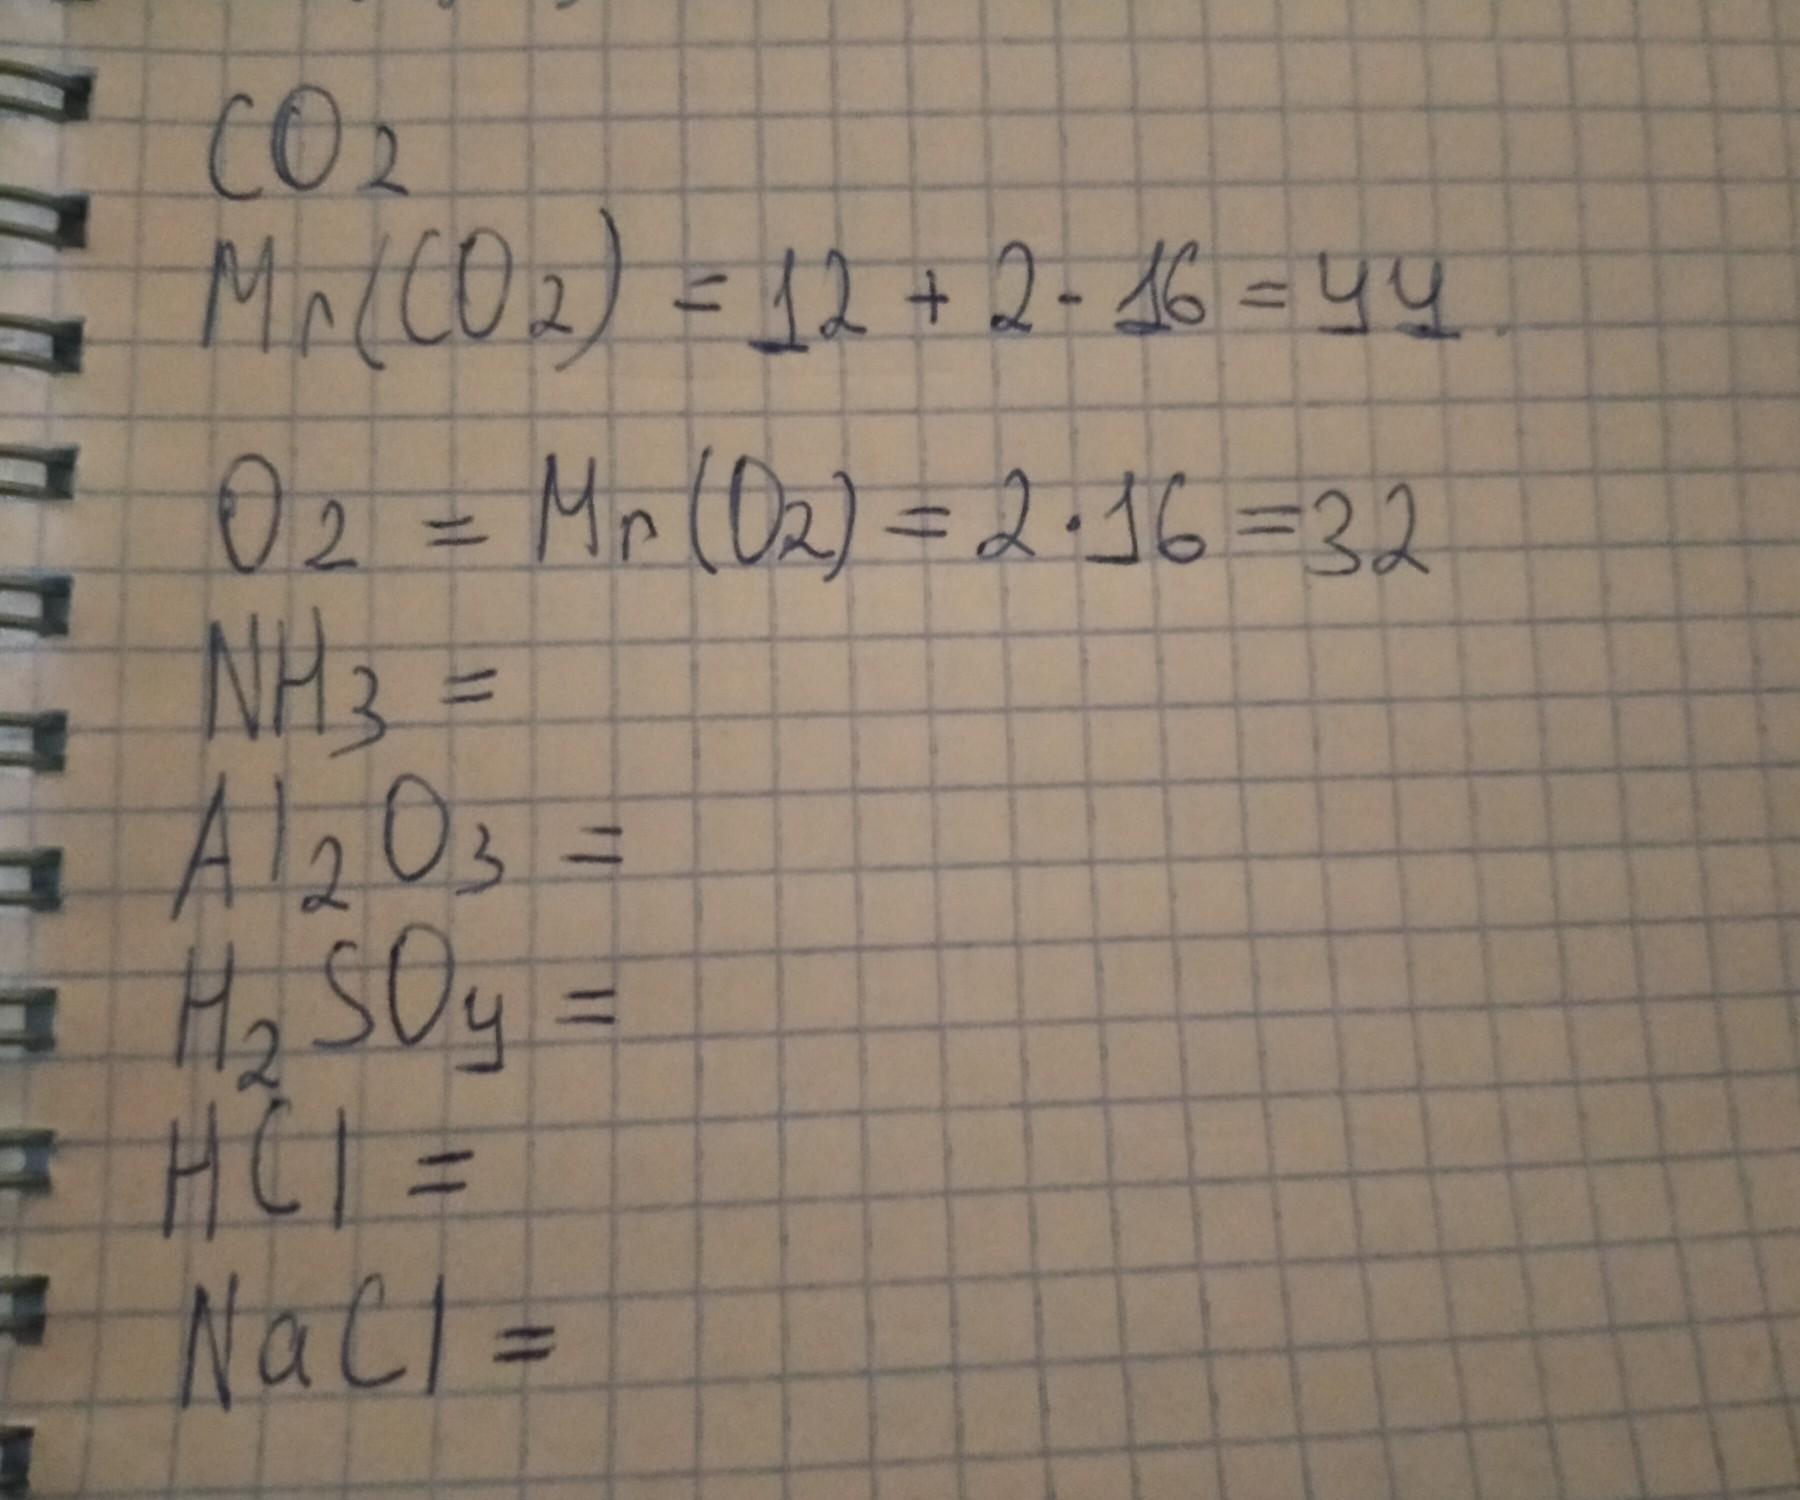 CO2
Mr(CO2) = 12 + 2 · 16 = 44
O2 = Mr(O2) = 2 · 16 = 32
NH3 =
Al2O3 =
H2SO4 =
HCl =
NaCl =